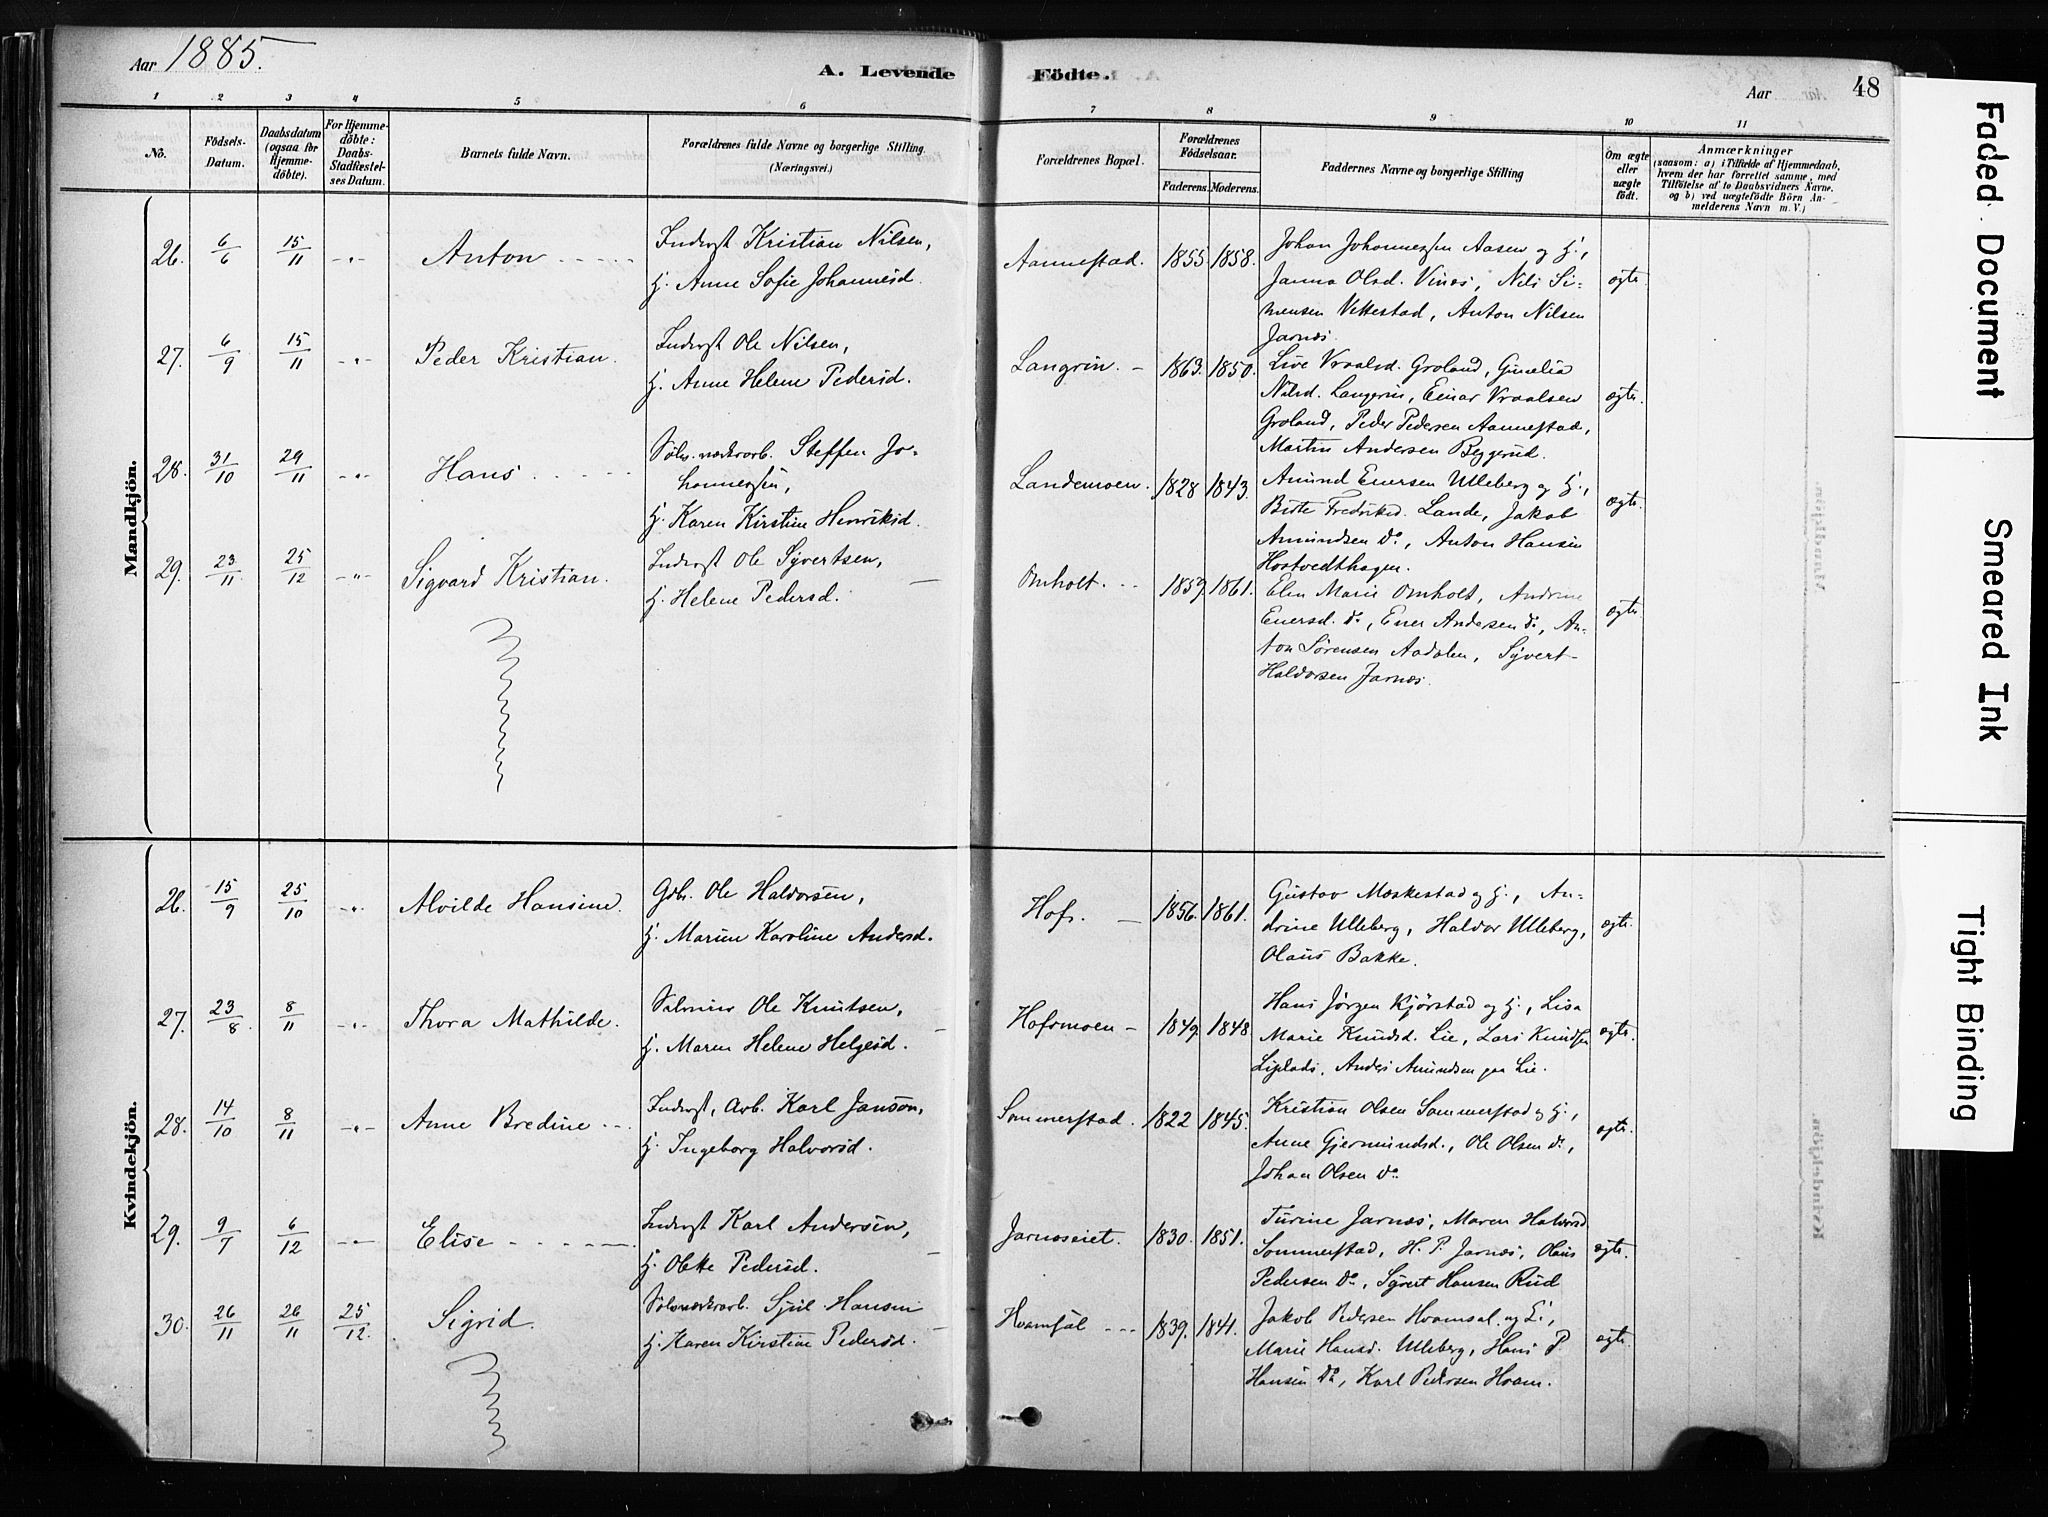 Aar 1885.
A. Levende
Födte.
Aar
48
1 2 3 4 5 6 7 8 9 10 11
No.
Födsels-
Datum.
Daabsdatum
(ogsaa for
Hjemme-
døbte).
For Hjemme-
døbte:
Daabs-
Stadfæstel-
ses Datum.
Barnets fulde Navn.
Forældrenes fulde Navne og borgerlige Stilling.
(Næringsvei.)
Forældrenes Bopæl.
Forældrenes
Födselsaar.
Faderens. Moderens.
Faddernes Navne og borgerlige Stilling
Om ægte
eller
uægte
födt.
Anmærkninger
(saasom: a) i Tilfælde af Hjemmedaab,
hvem der har forrettet samme, med
Tilföielse af to Daabsvidners Navne.
og b) ved uægtefödte Börn An-
melderens Navn m. V.)
Mandkjön.
26. 6/6 15/11 -"- Anton
Inderst Kristian Nilsen,
H. Anne Sofie Johannesd.
Aannestad. 1855. 1858.
Johan Johannessen Aasen og H.,
Janna Olsd. Vinæs, Nils Si-
mensen Vettestad, Anton Nilsen
Jarnæs.
ægte.
27. 6/9 15/11 -"- Peder Kristian.
Inderst Ole Nilsen,
H. Anne Helene Pedersd.
Langrin. 1863. 1850.
Live Vraalsd. Groland, Gunelia
Nilsd. Langerin, Einar Vraalsen
Groland, Peder Pedersen Aannestad,
Martin Andersen Beggerud.
ægte.
28. 31/10 29/11 -"- Hans
Sølvværksarb. Steffen Jo-
hannessen,
H. Karen Kirstine Henriksd.
Landemoen. 1828 1843.
Amund Enersen Ulleberg og H.,
Birte Fredriksd. Lande, Jakob
Amundsen do, Anton Hansen
Hostvedthagen.
ægte.
29. 23/11. 25/12 -"- Sigvard Kristian.
Inderst Ole Syvertsen,
H. Helene Pedersd.
Omholt. 1859 1861.
Elen Marie Omholt, Andrine
Enersd. do, Ener Andersen do, An-
ton Sørensen Aadalen, Syvert
Haldorsen Jarnæs.
ægte.
Kvindekjön.
26. 15/9 25/10 -"- Alvilde Hansine.
Gdbr. Ole Haldorsen,
H. Maren Karoline Andersd.
Hofs. 1856. 1861.
Gustav Moskestad og H., An-
drine Ulleberg, Haldor Ulleberg,
Olaus Bakke.
ægte.
27. 23/8. 8/11 -"- Thora Mathilde.
Ole Knutsen,
H. Maren Helene Helgesd.
Hofsmoen 1849. 1848.
Hans Jørgen Kjørstad og H., Lisa
Marie Knudsd. Lie, Lars Knudsen
Lieplads, Anders Amundsen paa Lie.
ægte.
28. 14/10 8/11 -"- Anne Bredine
Inderst, Arb. Karl Janson,
H. Ingeborg Halvorsd.
Sommerstad. 1822 1845.
Kristian Olsen Sommerstad og H.,
Anne Gjermundsd., Ole Olsen do,
Johan Olsen do
ægte.
29. 9/7 6/12 -"- Elise
Inderst Karl Andersen,
H. Olette Pedersd.
Jarnæseiet. 1830. 1851.
Turine Jarnæs, Maren Halvorsd
Sommerstad, H. P. Jarnæs, Olaus
Pedersen do, Syvert Hansen Rud
ægte.
30. 26/11 26/11 25/12. Sigrid.
Sølvværksarb. Sjul Hansen
H. Karen Kirstine Pedersd.
Hvamsal 1839. 1841.
Jakob Pedersen Hvamsal og H.,
Marie Hansd. Ulleberg, Hans P
Hansen do, Karl Pedersen Hvam.
ægte.
Faded Document
Smeared Ink
Tight Binding